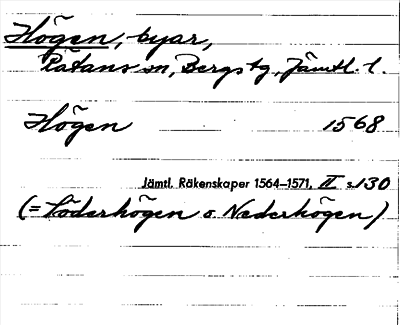 Högen, byar,
Rätans sn, Bergs tg, Jämtl. l.
Högen 1568
Jämtl. Räkenskaper 1564–1571, II s. 130
(= Söderhögen o. Nederhögen)